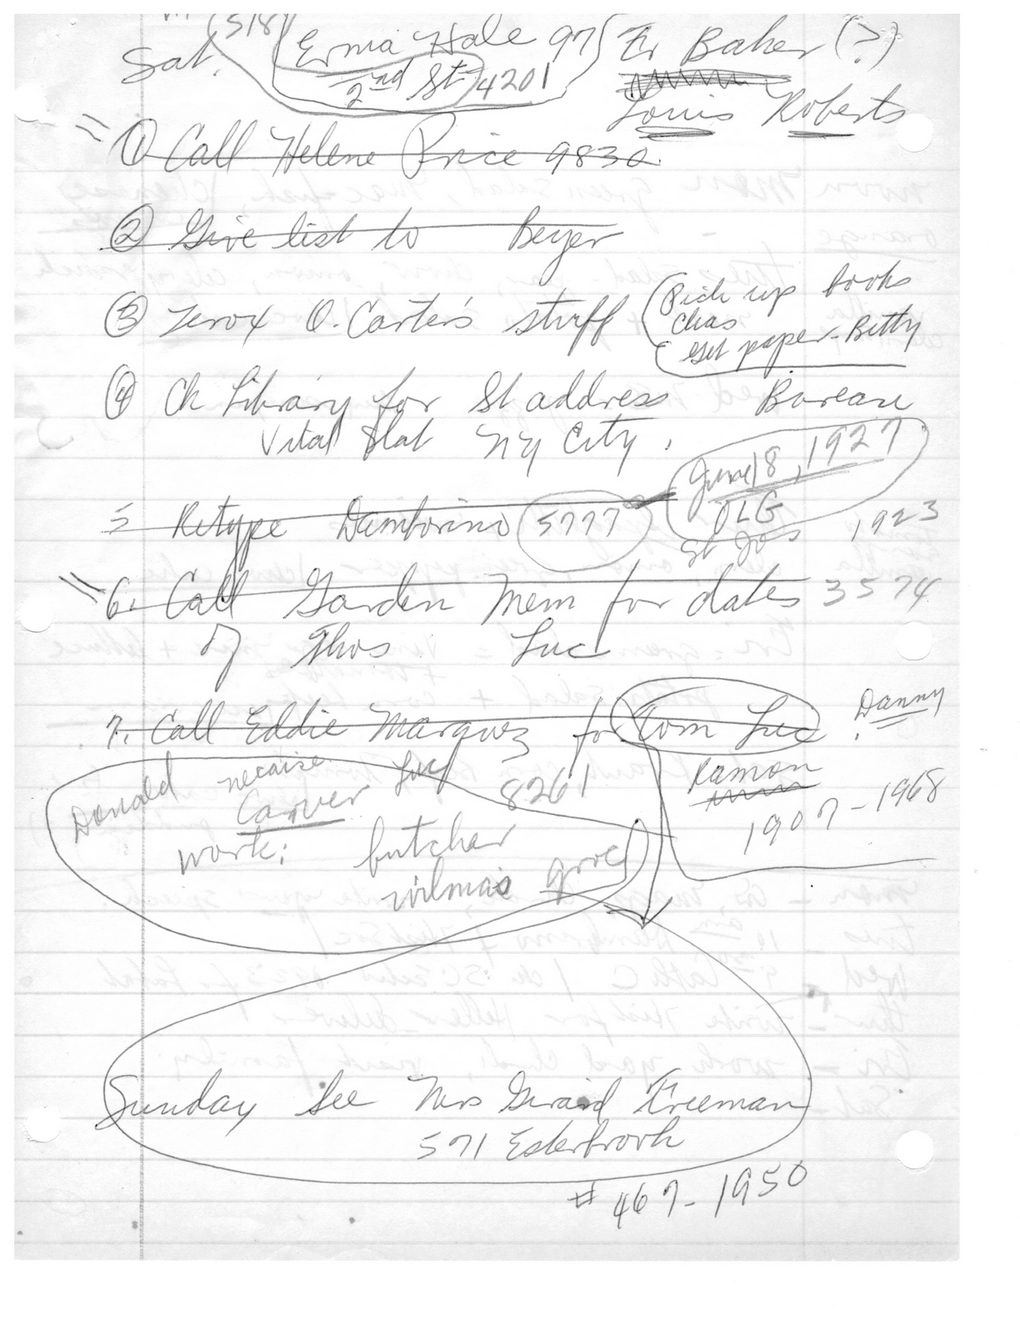 Sat. (518) Erma Hale 97 Er Baker (?)
2nd St. 4201
Louis Roberts
① Call Helene Price 9830
② Give list to Beyer
③ Zerox O. Carter's stuff (Pick up books
Chas
Get paper - Betty
④ Ch Library for St address Bureau
Vital Stat NY City.
June 18, 1927
5 Retype Damborino 5777 OLG
St Jos 1923
6. Call Garden Mem for dates 3574
of Thos Luc
7. Call Eddie Marquez for Tom Luc. Danny
Donald necaise Luc 8261 Ramon
Carver 1907-1968
work: butcher
wilmas groc
Sunday See Mrs Girard Freeman
571 Esterbrook
# 467-1950